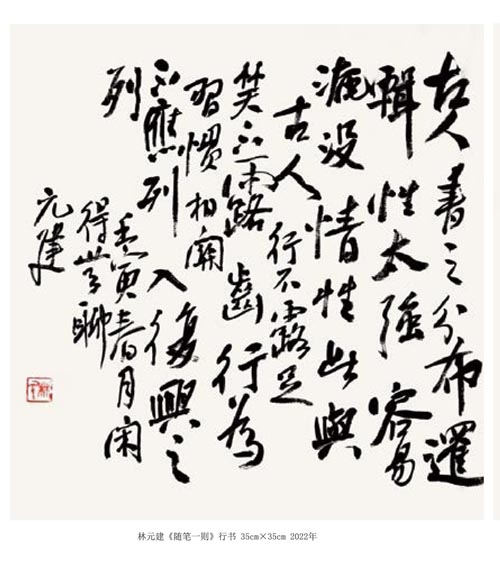 古人書之分布邏
輯性太強容易
淹没情性此與
古人行不露足
笑不露齒行為
習慣相關
不應列入復興之
列
壬寅春月闲
得聊
元建
林元建《随笔一则》行书 35cm×35cm 2022年